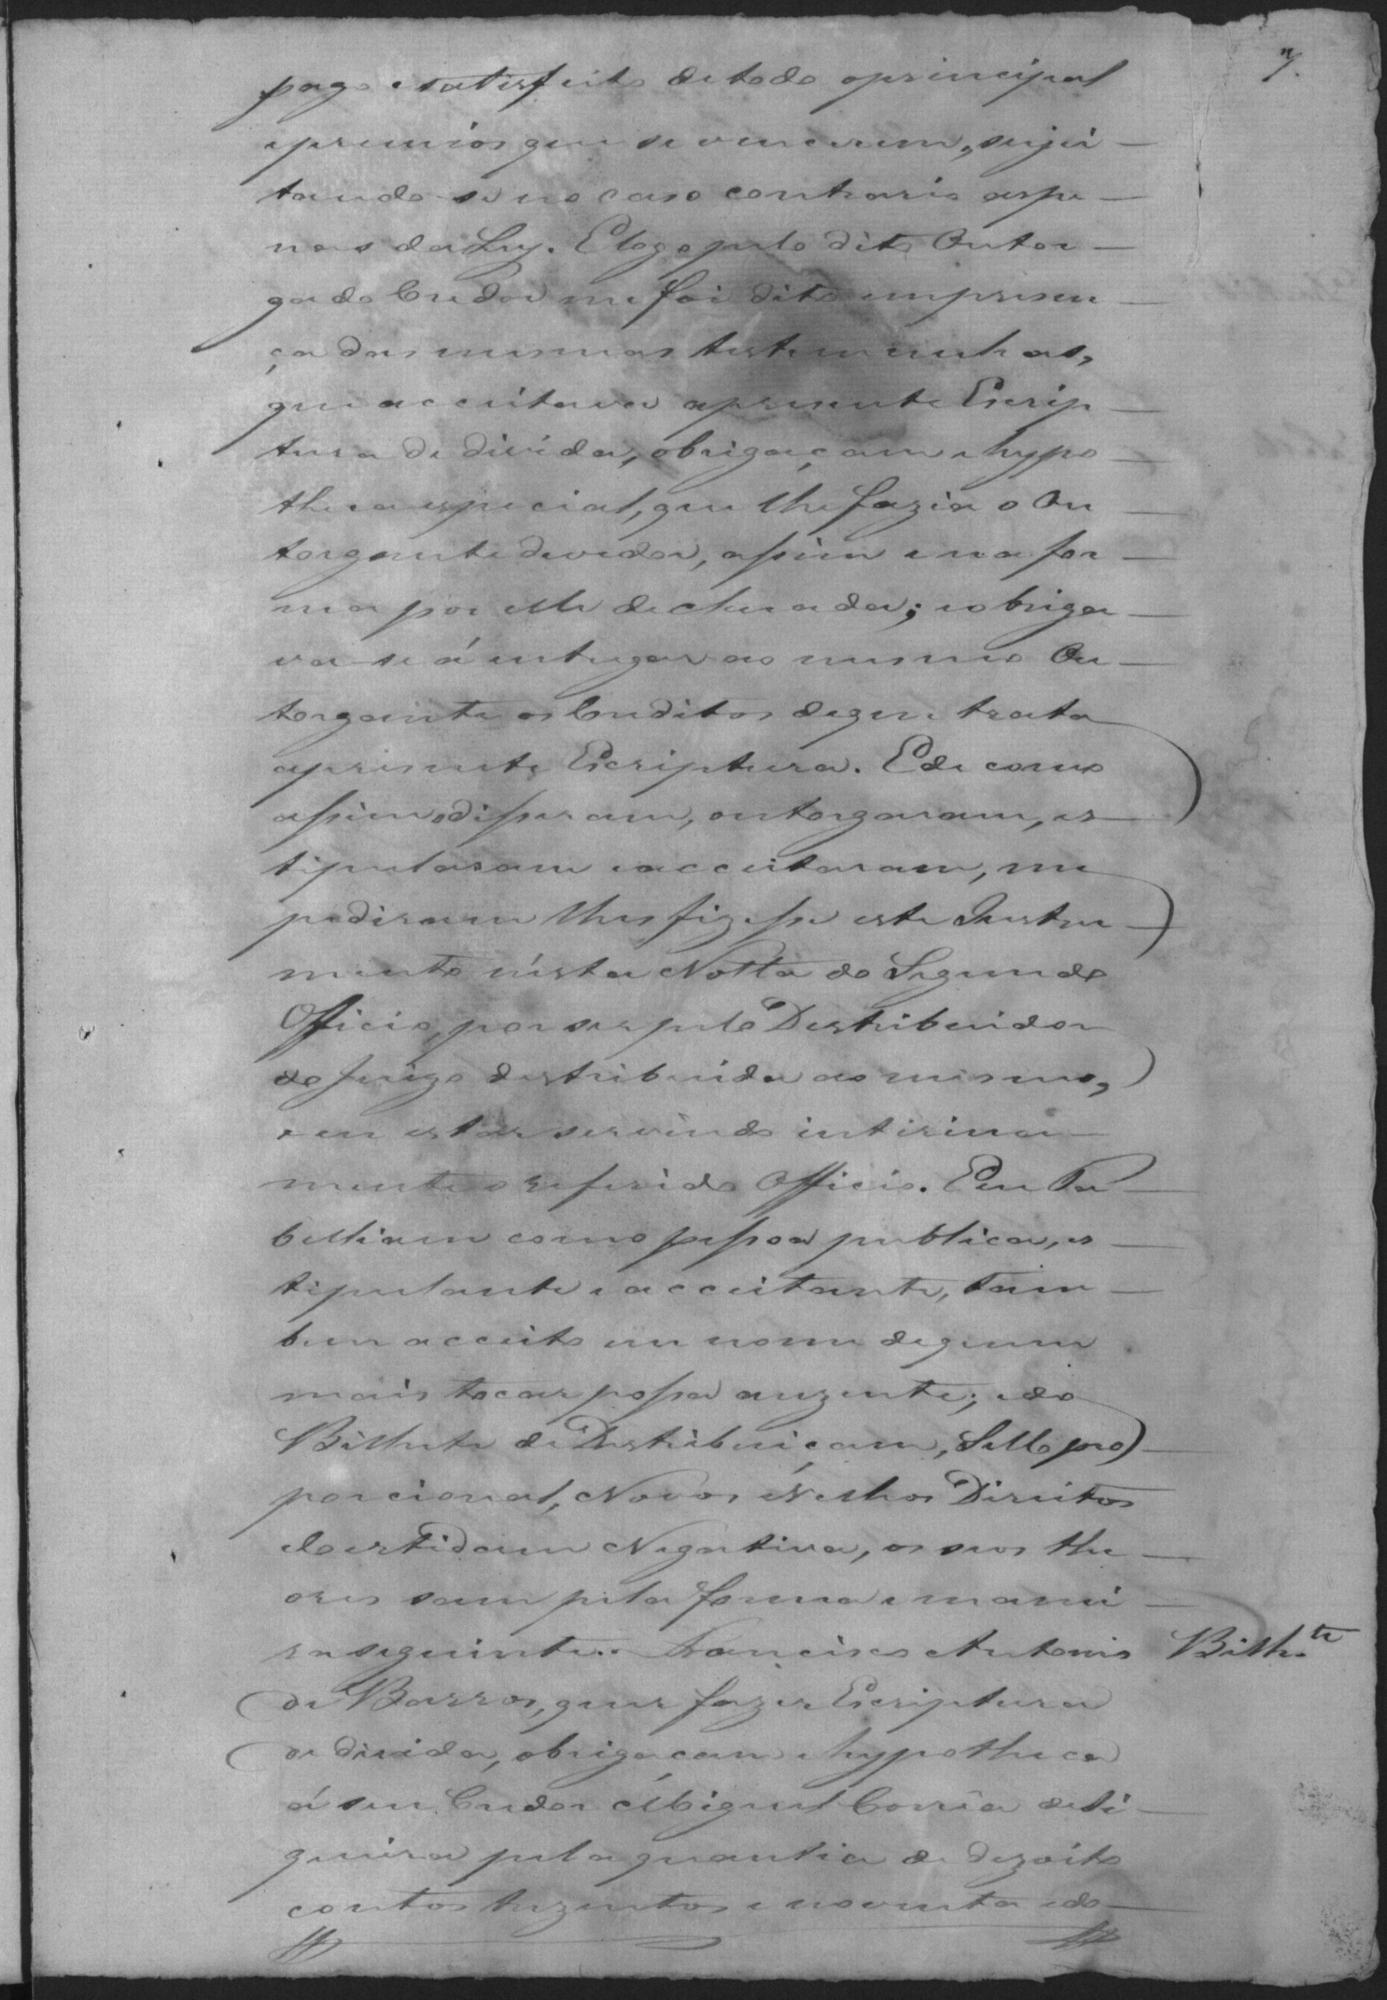 7.
pago e satisfeito de todo o principal
e premios que se vencerem, sujei
tando-se no caso contrario as pe
nas da Ley. E logo pelo dito Outor
gado Credor me foi dito em presen
ça das mesmas testemunhas,
que acceitava a presente Escrip
tura de divida, obrigaçam e hypo
theca especial, que lhe fazia o Ou
torgante devedor, assim e na for
ma por elle declarada; e obriga
va-se á entregar ao mesmo Ou
torgante os Creditos de que trata
a presente Escriptura. E de como
assim o disseram, outorgaram, es
tipularam e acceitaram, me
pediram lhes fizesse este Instru
mento nésta Notta do Segundo
Officio, por ser pelo Destribuidor
do Juizo destribuida ao mesmo,
e eu estar servindo intirina
mente o referido Officio. E eu Ta
belliam como pessoa publica, es
tipulante e acceitante, tam
bem acceito em nome de quem
mais tocar possa auzente; e do
Bilhete de Destribuiçam, Sello pro
porcional, Novos e Velhos Direitos
e Certidam Negativa, os seos the
ores sam pela forma e manei
ra seguinte. Francisco Antonio
Bilh.te
de Barros, quer fazer Escriptura
de divida, obrigaçam e hypotheca
á seu Credor Miguel Corrêa de Si
queira pela quantia de dezoito
contos trezentos e noventa e do